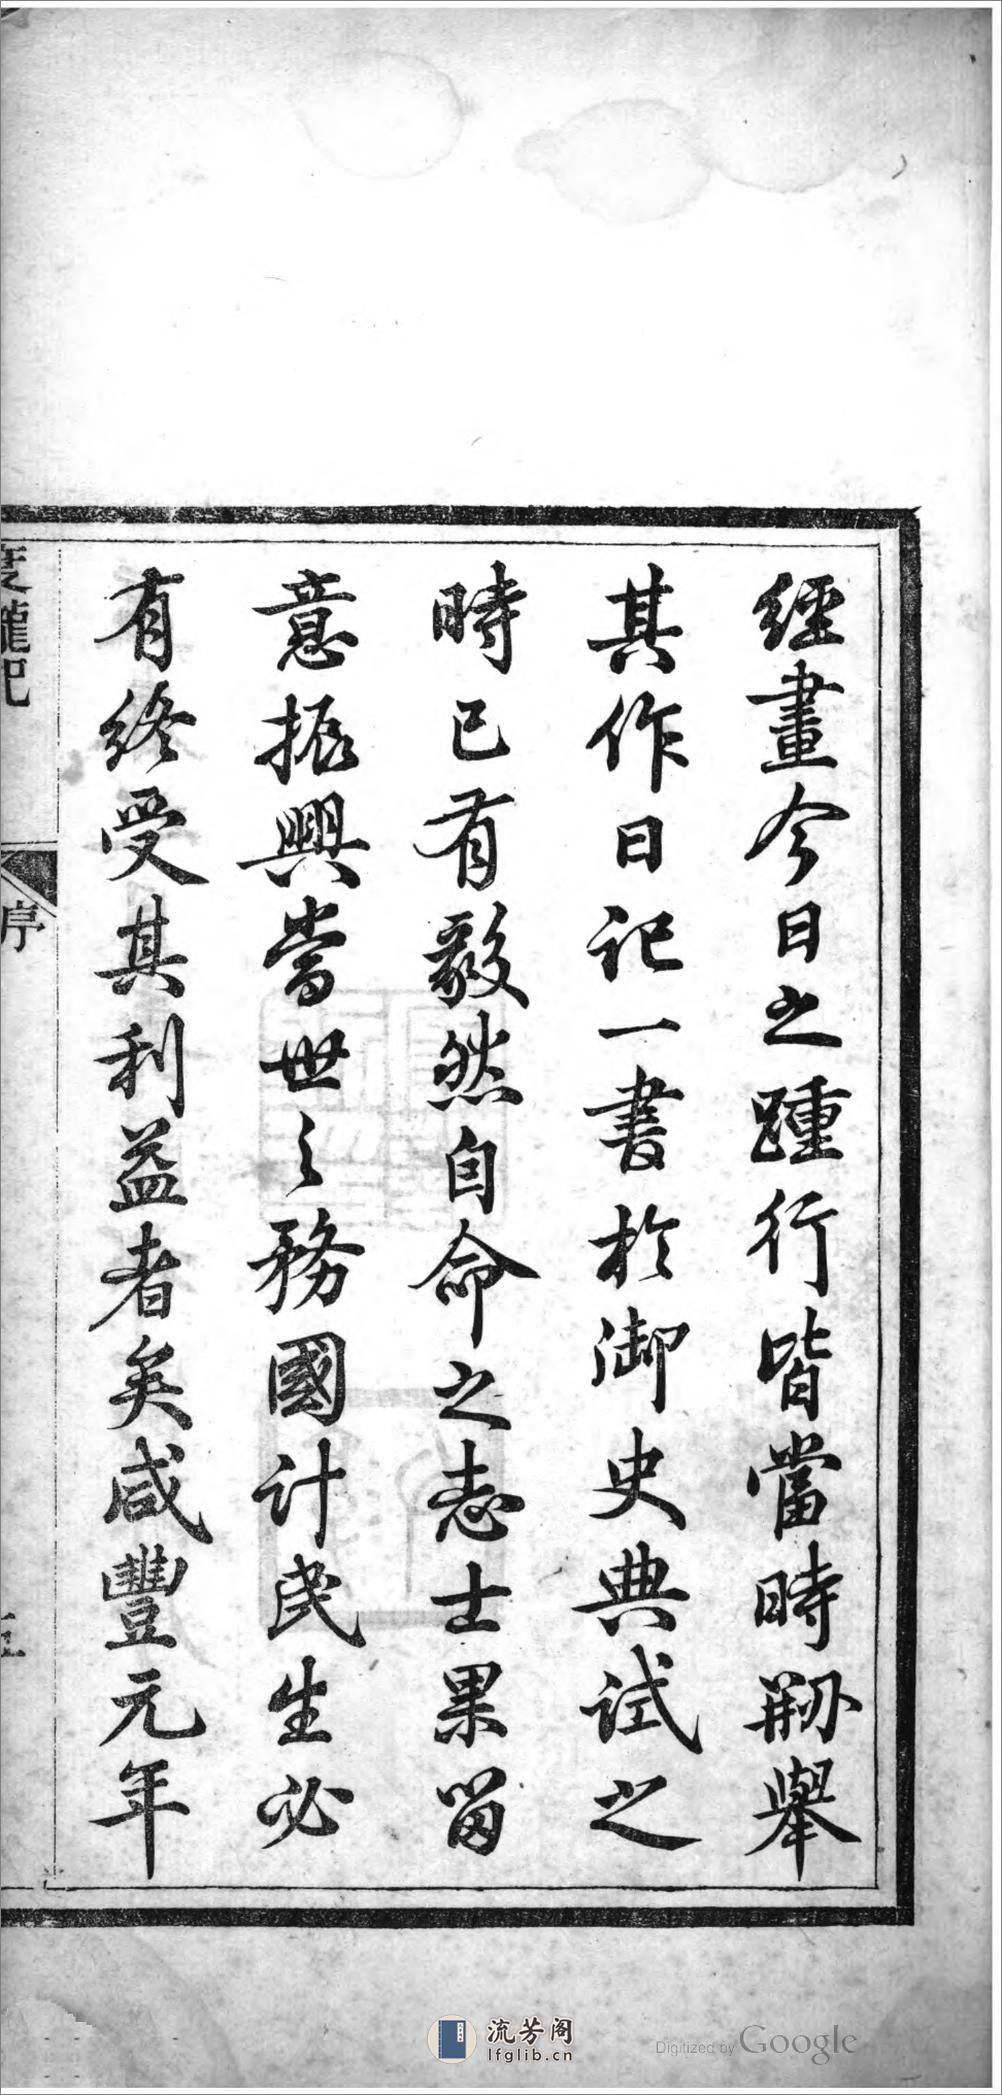 經畫今日之踵行皆當時刱舉
其作日記一書於御史典試之
時已有毅然自命之志士果留
意振興當世之務國計民生必
有終受其利益者矣咸豐元年
度隴記
序
流芳阁
lfglib.cn
Digitized by Google